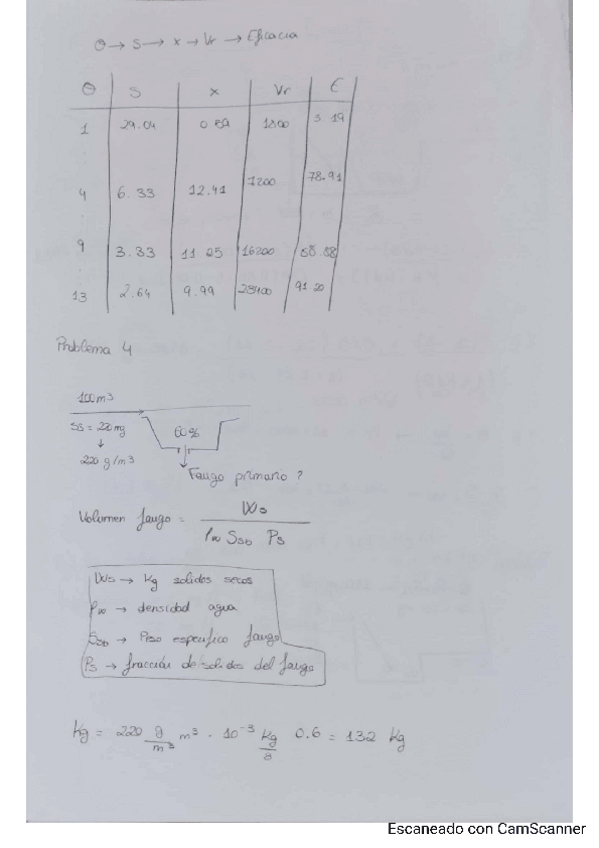 θ → S → x → Vr → Eficacia
θ S x Vr E
1 29.04 1800 3.19
4 6.33 12.41 7200 78.91
9 3.33 11.25 16200 88.88
13 2.64 9.99 23400 91.20
Problema 4
100 m³
SS = 220 mg
60%
↓
220 g/m³
Fango primario ?
Volumen fango = Ws / ρw Ssb Ps
Ws → Kg solidos secos
ρw → densidad agua
Ssb → Peso especifico fango
Ps → fracción de solidos del fango
Kg = 220 g/m³ m³ · 10⁻³ Kg/g 0.6 = 132 Kg
Escaneado con CamScanner